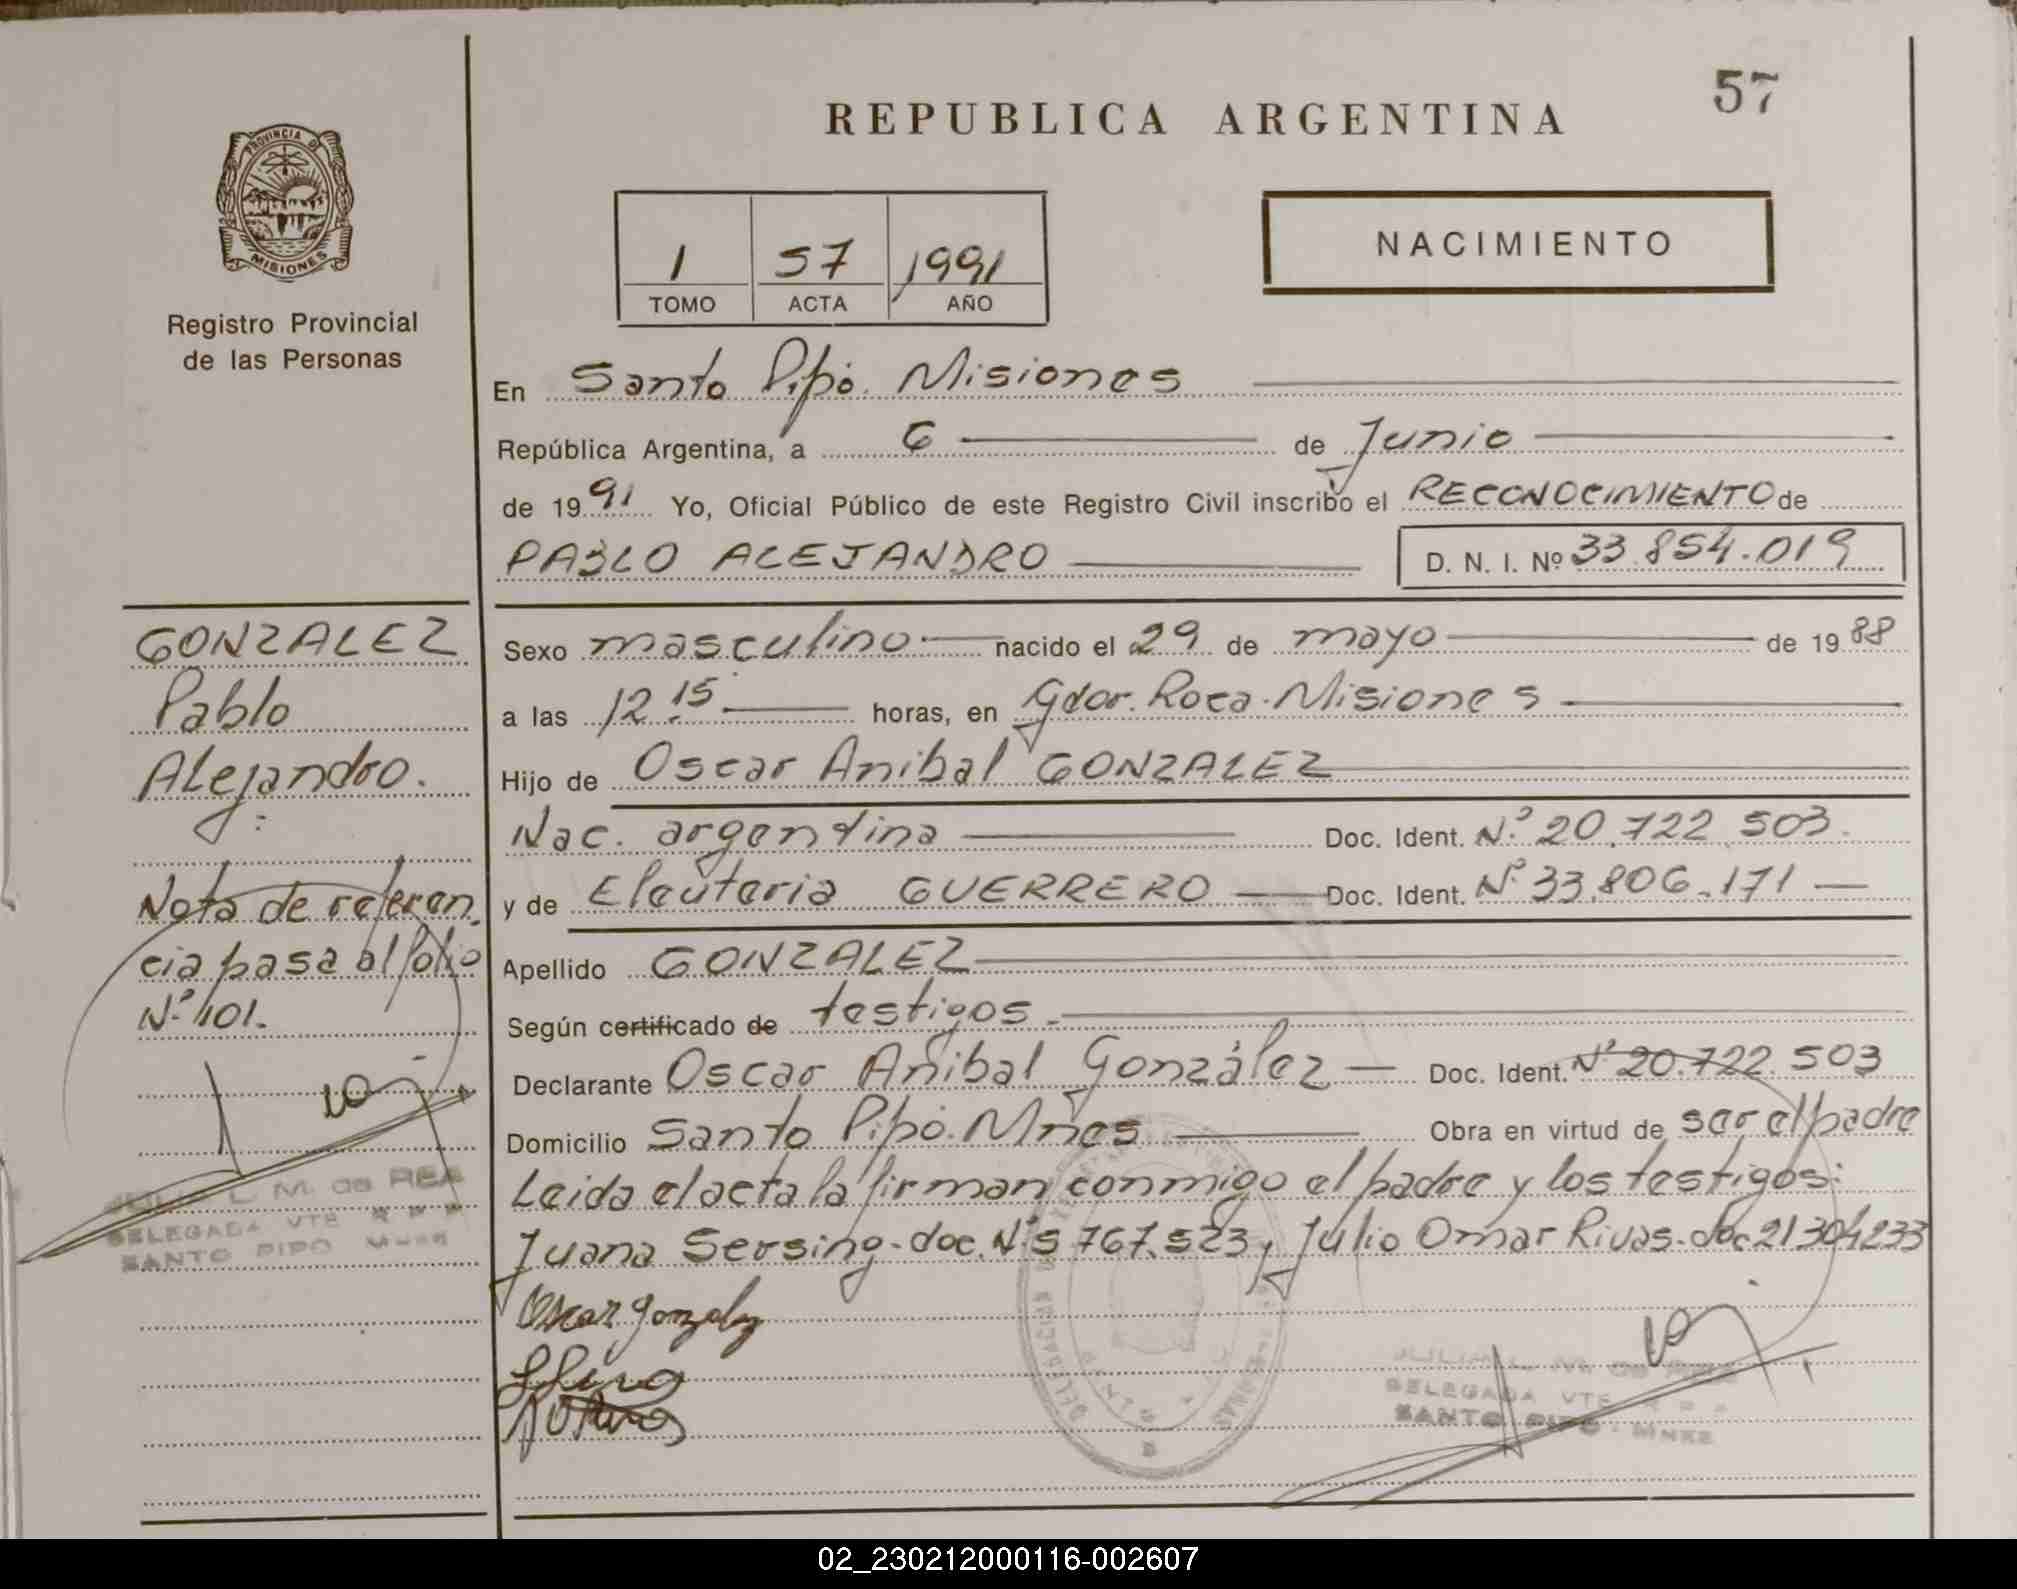 57
REPUBLICA ARGENTINA
PROVINCIA DE
MISIONES
Registro Provincial
de las Personas
1 57 1991
TOMO ACTA AÑO
NACIMIENTO
En Santo Pipó. Misiones
República Argentina, a 6 de Junio
de 1991 Yo, Oficial Público de este Registro Civil inscribo el RECONOCIMIENTO de
PABLO ALEJANDRO D. N. I. Nº 33.854.019
GONZALEZ
Pablo
Alejandro.
Nota de referen
cia pasa al folio
Nº 101.
JULIA L. M. de REA
DELEGADA VTE
SANTO PIPO Mnes
Sexo masculino nacido el 29 de mayo de 1988
a las 12.15 horas, en Gdor. Roca. Misiones
Hijo de Oscar Anibal GONZALEZ
Nac. argentina Doc. Ident. Nº 20.722.503.
y de Eleuteria GUERRERO Doc. Ident. Nº 33.806.171
Apellido GONZALEZ
Según certificado de testigos.
Declarante Oscar Anibal González Doc. Ident. Nº 20.722.503
Domicilio Santo Pipó. Mnes Obra en virtud de ser el padre
Leida el acta la firman conmigo el padre y los testigos:
Juana Sersing. doc. Nº 5 767.523, Julio Omar Rivas. doc 21304233
Oscar Gonzalez
DELEGADA VTE
SANTO PIPO. MNES
02_230212000116-002607